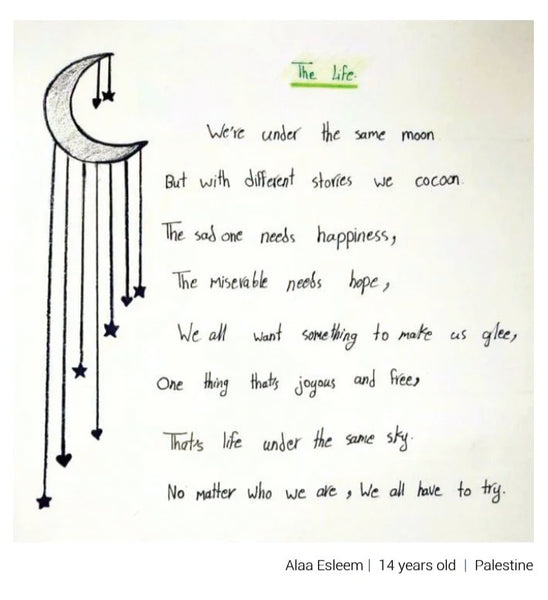 The Life.
We're under the same moon
But with different stories we cocoon.
The sad one needs happiness,
The miserable needs hope,
We all want something to make us glee,
One thing that's joyous and free,
That's life under the same sky.
No matter who we are, We all have to try.
Alaa Esleem | 14 years old | Palestine